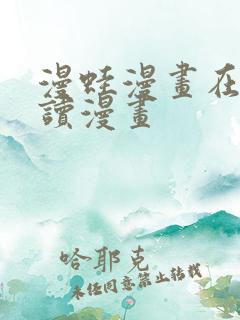 漫蛙漫畫在
讀漫畫
哈耶克
未经同意禁止转载